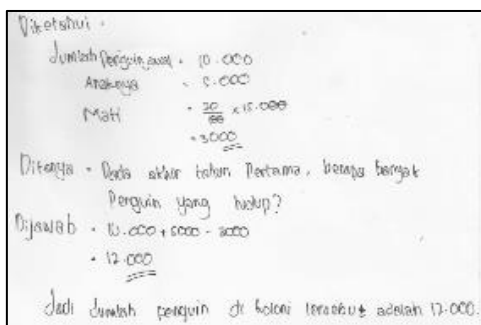 Diketahui :
Jumlah Penguin awal = 10.000
Anaknya = 5.000
Mati = 20/100 x 15.000
= 3000
Ditanya = Pada akhir tahun Pertama, berapa banyak
Penguin yang hidup?
Dijawab = 10.000 + 5000 - 3000
= 12.000
Jadi Jumlah penguin di koloni tersebut adalah 12.000.